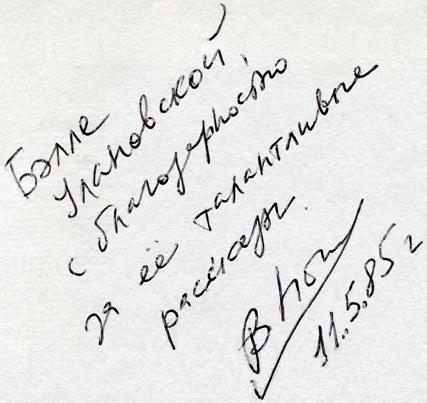 Бэлле
Улановской,
с благодарностью
за её талантливые
рассказы.
11.5.85 г